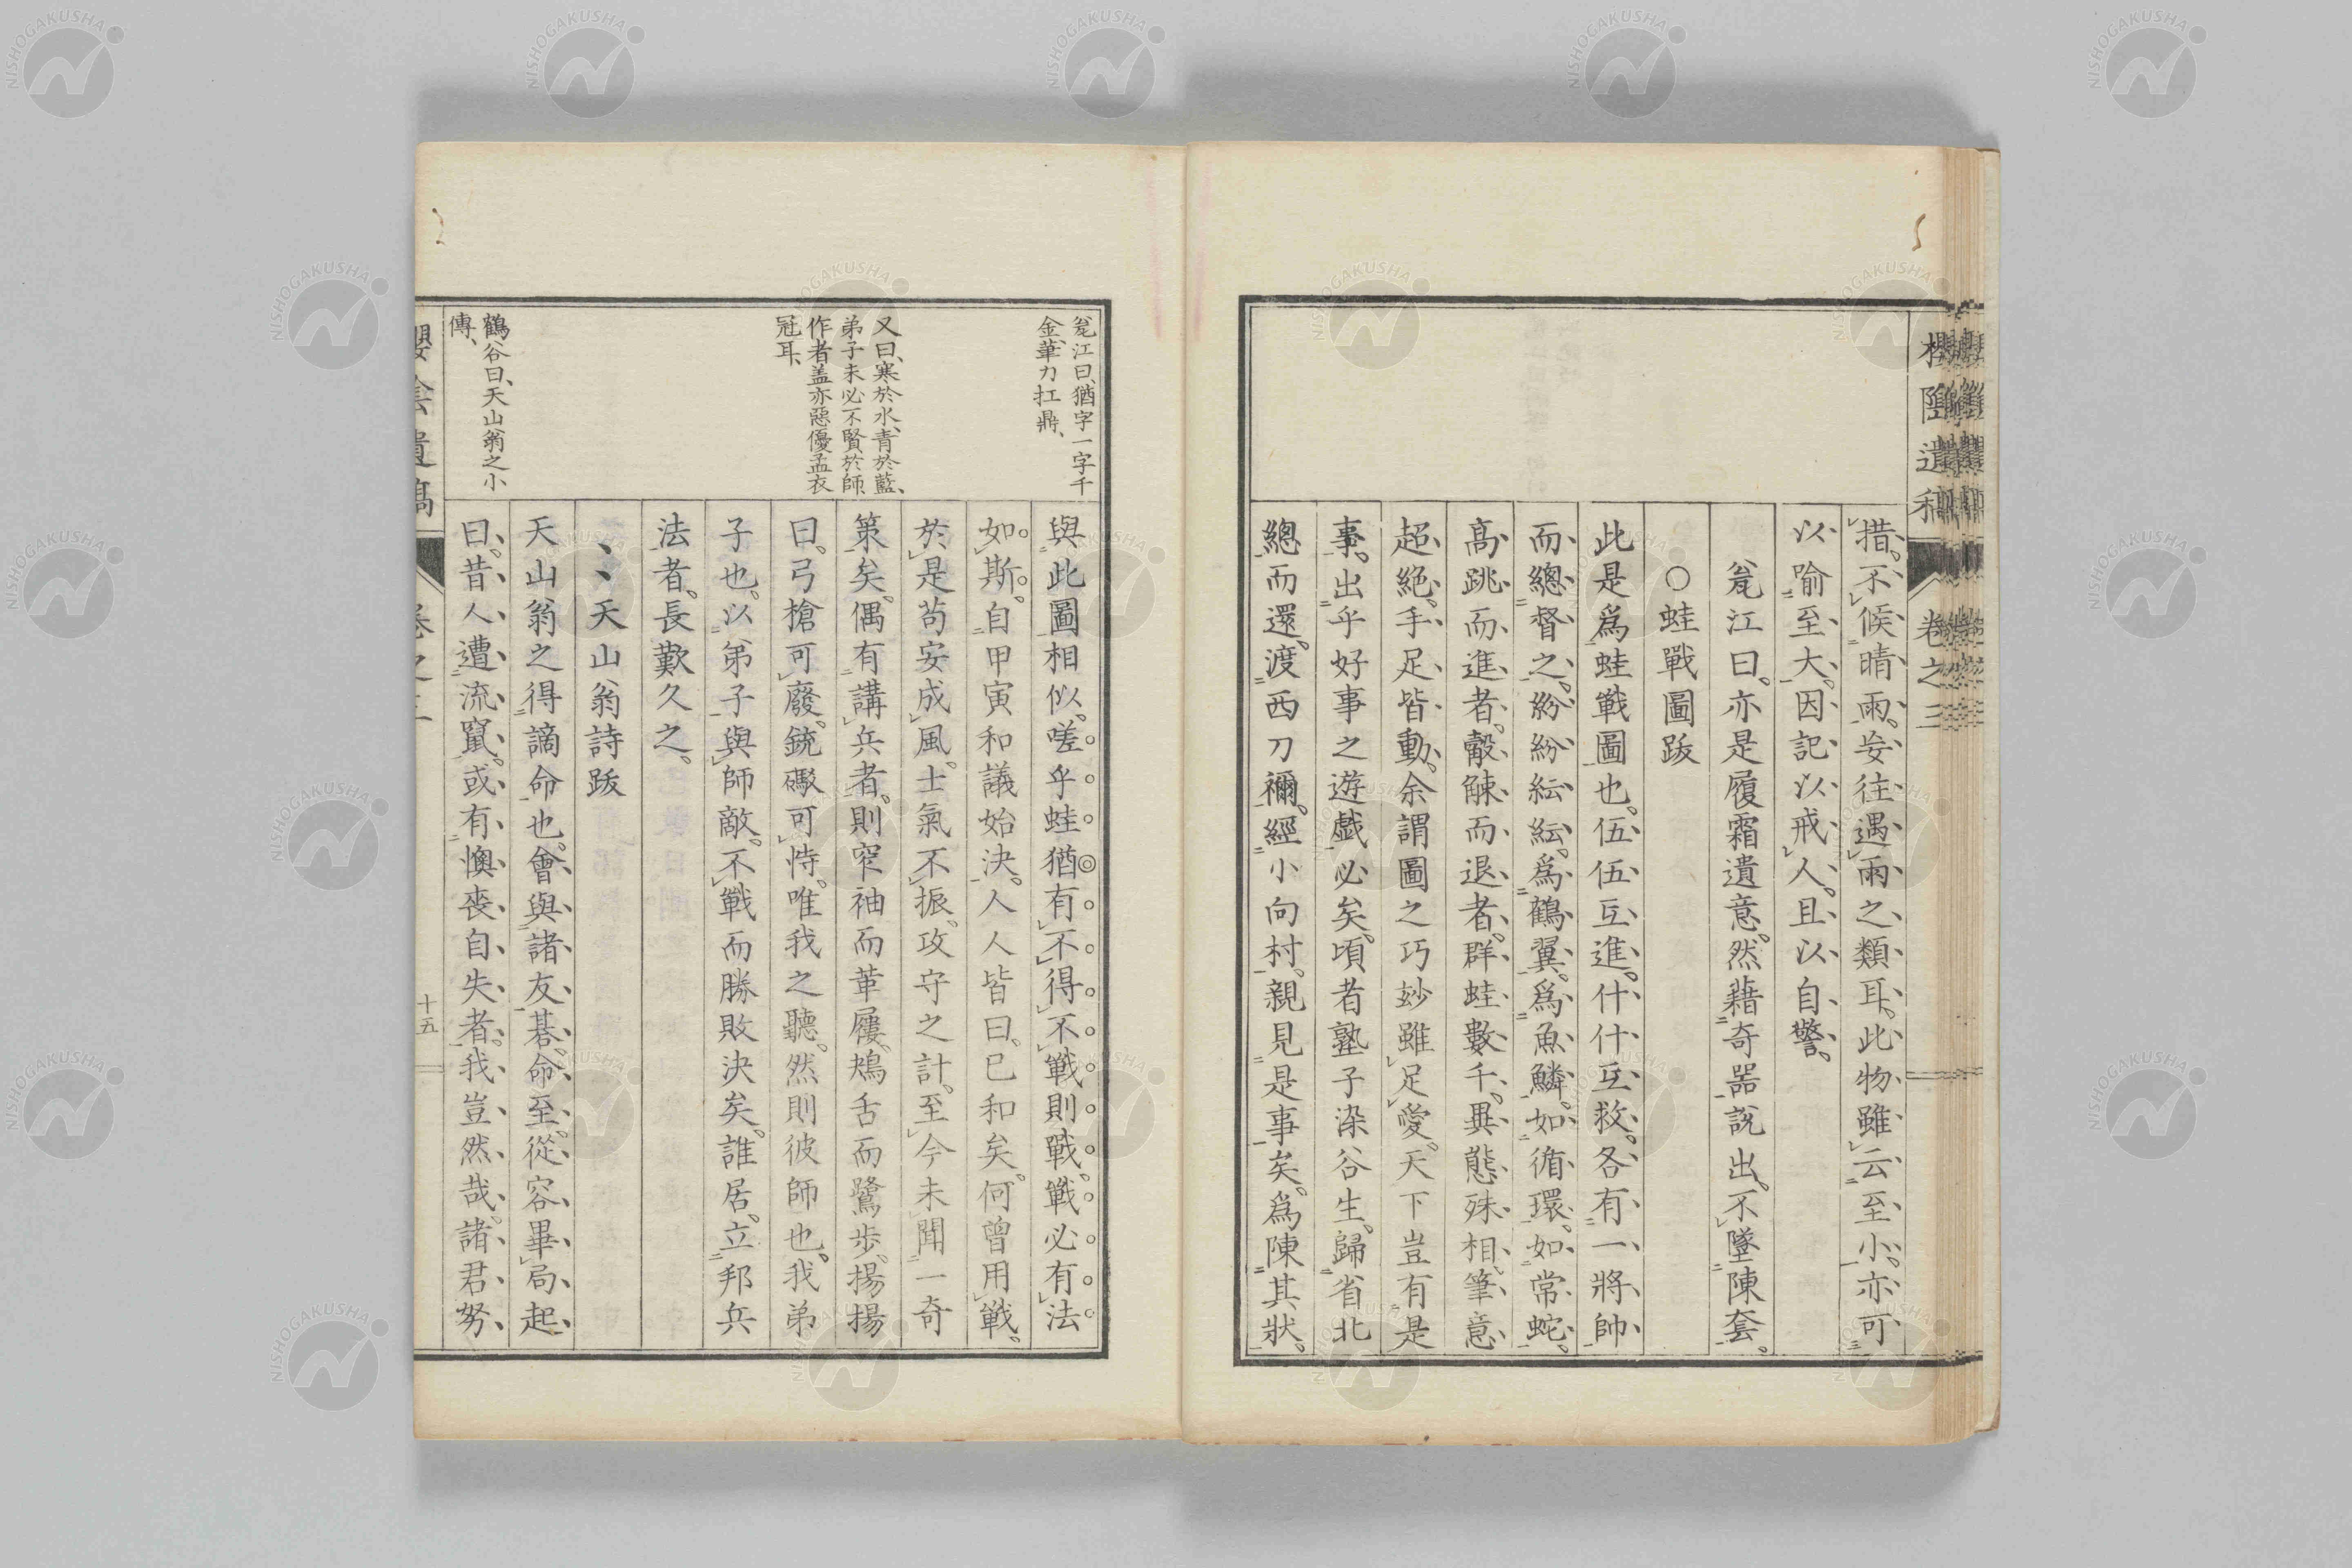 櫻陰遺稿
卷之三
措。不候晴雨。妄往遇雨之類耳。此物雖云至小。亦可
以喻至大。因記以戒人。且以自警。
瓮江曰。亦是履霜遺意。然藉奇器說出。不墜陳套。
○蛙戰圖跋
此是爲蛙戰圖也。伍伍互進。什什互救。各有一將帥
而總督之。紛紛紜紜。爲鶴翼。爲魚鱗。如循環。如常蛇。
高跳而進者。觳觫而退者。群蛙數千。異態殊相。筆意
超絕。手足皆動。余謂圖之巧玅雖足愛。天下豈有是
事。出乎好事之遊戲必矣。頃者塾子染谷生。歸省北
總而還。渡西刀禰。經小向村。親見是事矣。爲陳其狀。
與此圖相似。嗟乎蛙猶有不得不戰則戰。戰必有法
如斯。自甲寅和議始決。人人皆曰。已和矣。何曾用戰。
於是苟安成風。士氣不振。攻守之計。至今未聞一奇
策矣。偶有講兵者。則窄袖而革屨。鴂舌而鷺步。揚揚
曰。弓槍可廢。銃礮可恃。唯我之聽。然則彼師也。我弟
子也。以弟子與師敵。不戰而勝敗決矣。誰居。立邦兵
法者。長歎久之。
、、天山翁詩跋
天山翁之得謫命也。會與諸友碁。命至。從容畢局。起
曰。昔人遭流竄。或有懊喪自失者。我豈然哉。諸君努
瓮江曰、猶字一字千
金、筆力扛鼎、
又曰、寒於水、青於藍、
弟子未必不賢於師
作者盖亦惡優孟衣
冠耳、
鶴谷曰、天山翁之小
傳、
櫻陰遺稿
卷之三
十五
NISHOGAKUSHA